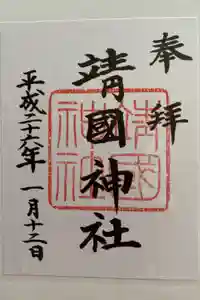 奉拝
靖國神社
靖国神社
平成二十六年 一月十二日